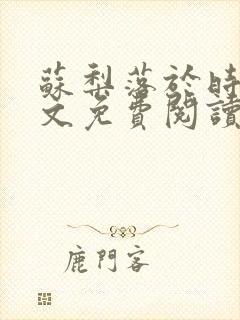 蘇梨落於時
文免費閱讀
鹿門客